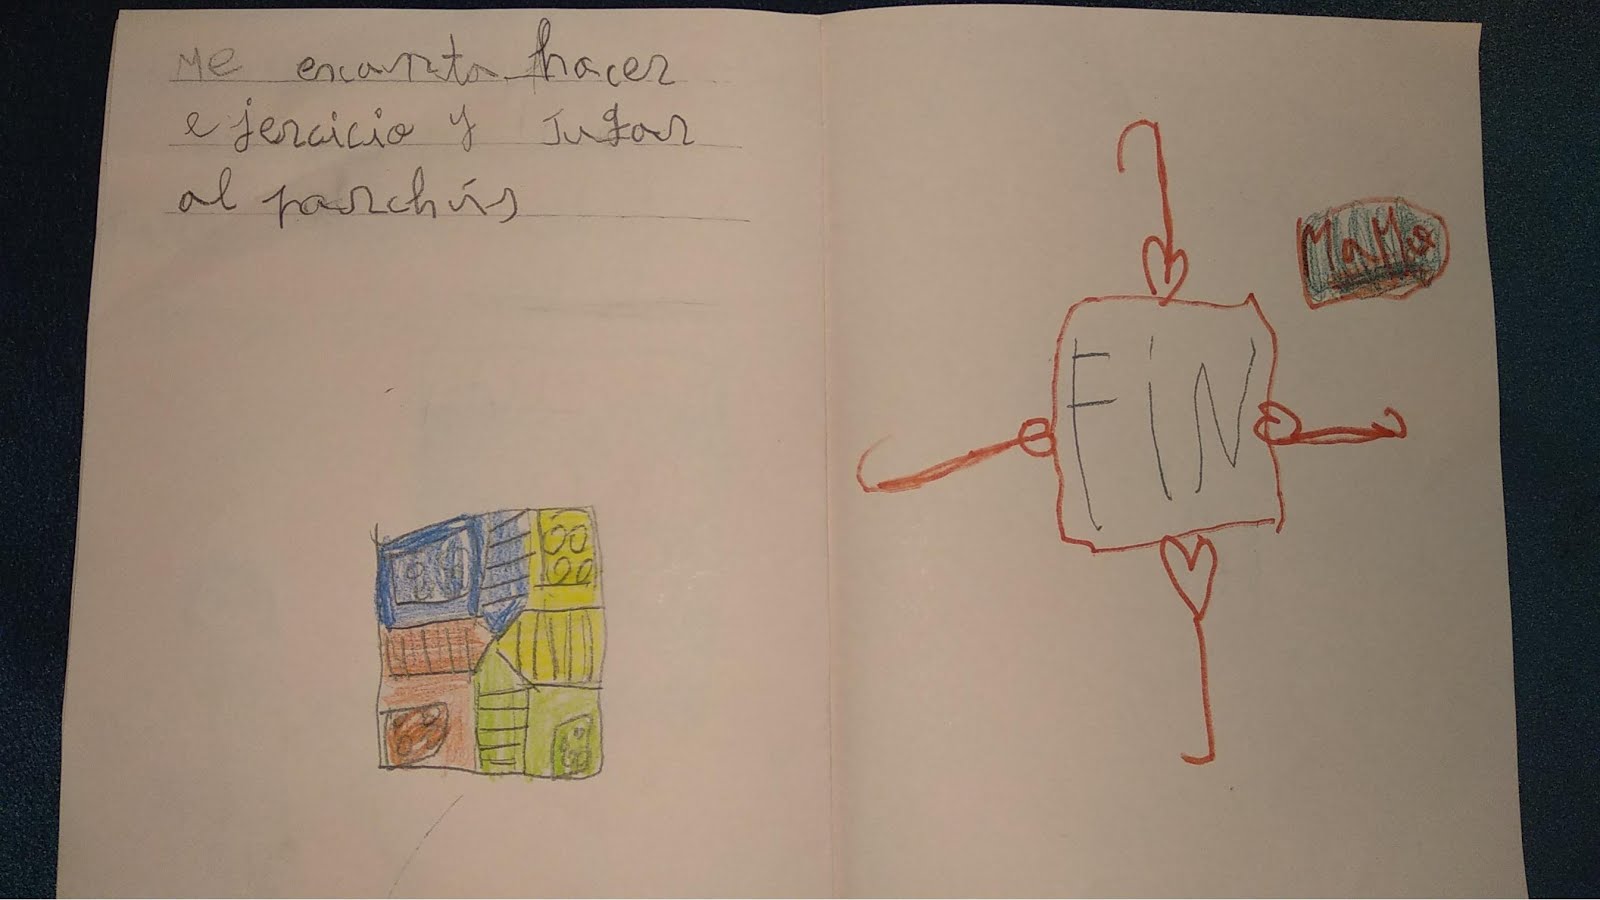 Me encanta hacer
ejercicio y jugar
al parchís
MaMa
FiN